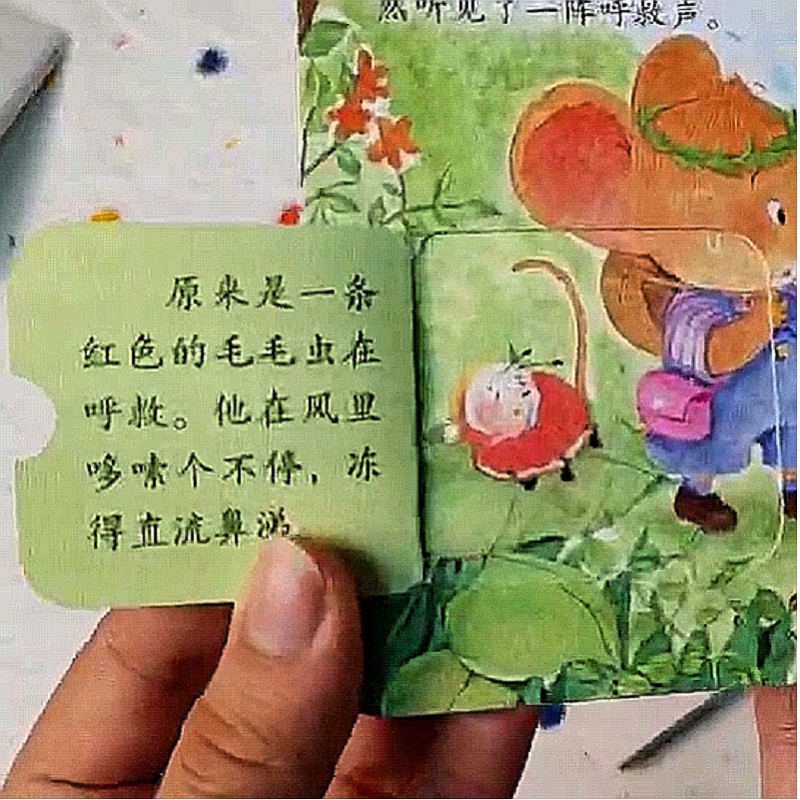 然听见了一阵呼救声。
原来是一条
红色的毛毛虫在
呼救。他在风里
哆嗦个不停，冻
得直流鼻涕